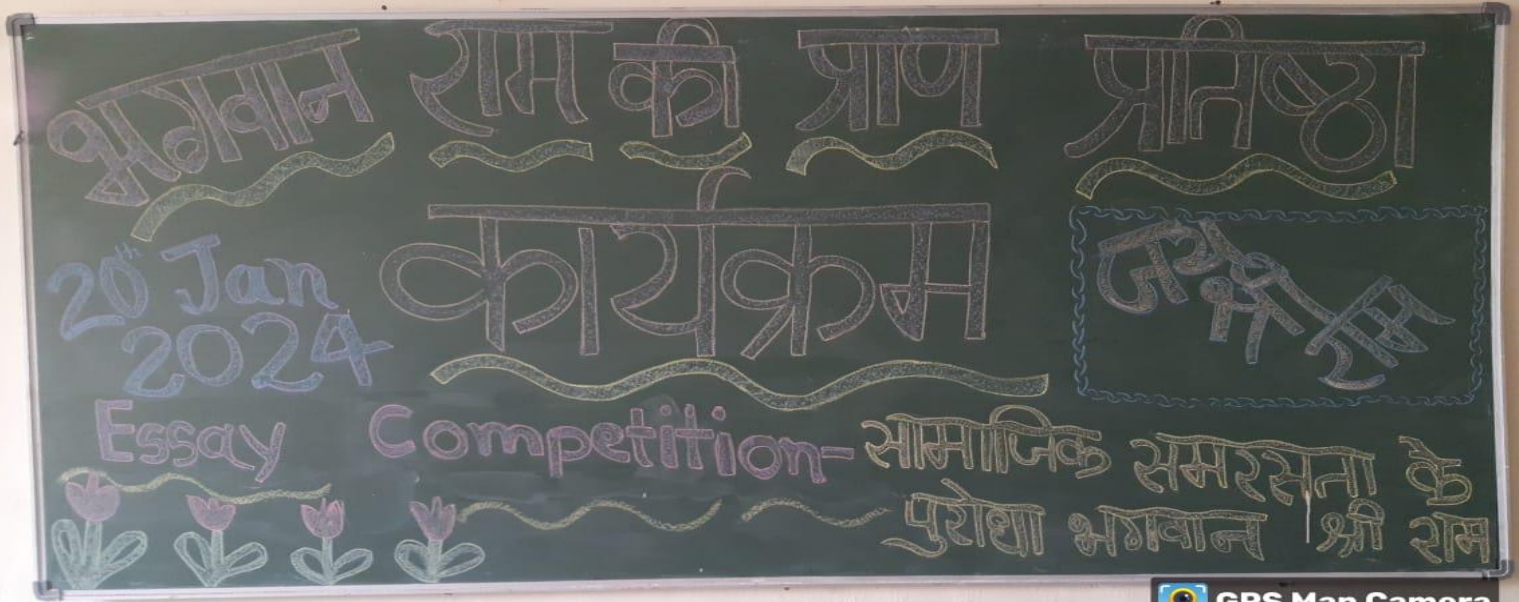 भगवान राम की प्राण प्रतिष्ठा
कार्यक्रम
20th Jan
2024
जय श्री राम
Essay Competition- सामाजिक समरसता के
पुरोधा भगवान श्री राम
GPS Map Camera